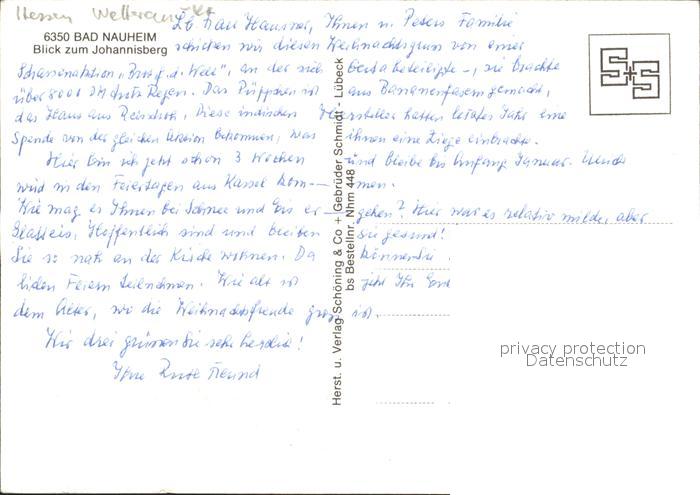 Hessen Wetterau-Kr
6350 BAD NAUHEIM
Blick zum Johannisberg
Lb Frau Hausner, Ihnen u. Peters Familie
schicken wir diesen Weihnachtsgruss von einer
"Brot f. d. Welt", an der sich Gerta beteiligte -, sie brachte
über 8000 DM Das Püppchen ist aus Bananenfasern gemacht,
das Haus aus Diese indischen Hersteller hatten letztes Jahr eine
Spende von der gleichen bekommen, was ihnen eine Ziege einbrachte.
Hier bin ich jetzt schon 3 Wochen und bleibe bis Anfang Januar.
wird in den Feiertagen aus Kassel kom- men.
Wie mag es Ihnen bei Schnee und Eis er- gehen? Hier war es relativ milde, aber
Glatteis, Hoffentlich sind und bleiben Sie gesund!
Sie so nah an der Kirche wohnen. Da können Sie
Feiern teilnehmen. Wie alt ist jetzt Ihr
dem Alter, wo die Weihnachtsfreude gross ist.
Wir drei grüssen Sie sehr herzlich!
Ihre Freund
Herst. u. Verlag Schöning & Co + Gebrüder Schmidt - Lübeck
bs Bestellnr. Nhm 448
S+S
privacy protection
Datenschutz